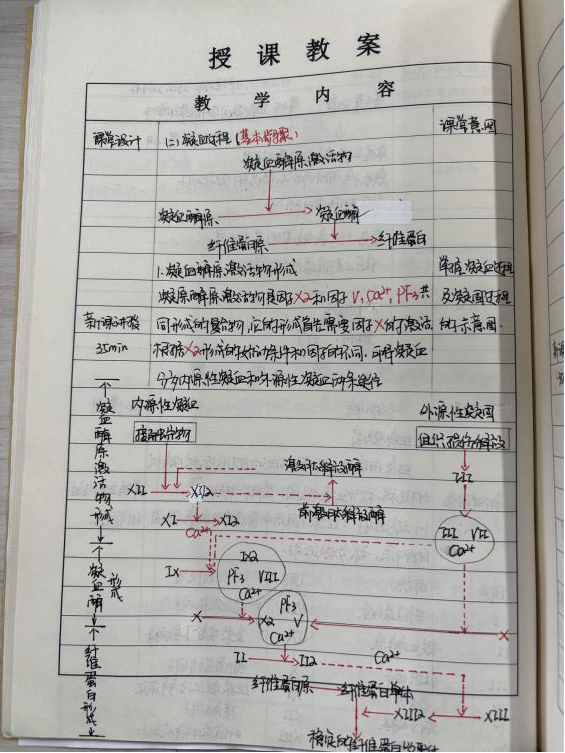 授课教案
教学内容
课堂设计 (二)凝血过程(基本步骤) 课堂意图
凝血酶原激活物
凝血酶原 凝血酶
纤维蛋白原 纤维蛋白
1.凝血酶原激活物形成 掌握凝血过程
凝原酶原激活物是因子X2和因子V,Ca²⁺,PF3共 及凝固过程
新课讲授 同形成的复合物,它的形成首先需要因子X的激活 的示意图.
35min 根据X2形成的始动条件和因子的不同,可将凝血
分为内源性凝血和外源性凝血两条途径
内源性凝血 外源性凝固
接触异物 组织损伤释放
III
激肽释放酶
XII XII2
前激肽释放酶
XI XI2
Ca²⁺
III VII
Ca²⁺
IX
IX2
PF3 VIII
Ca²⁺
X
PF3
X2 V
Ca²⁺
X
II II2 Ca²⁺
纤维蛋白原 纤维蛋白单体
XIII2 XIII
稳定的纤维蛋白
凝血酶原激活物形成
凝血酶形成
纤维蛋白形成